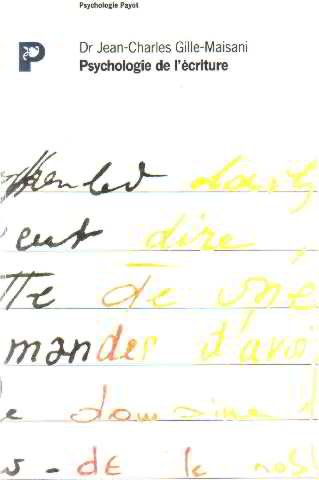 Psychologie Payot
P
Dr Jean-Charles Gille-Maisani
Psychologie de l'écriture
dois
eut dire,
tte de une
mander d'avoi
e domaine d
s - de la nobl